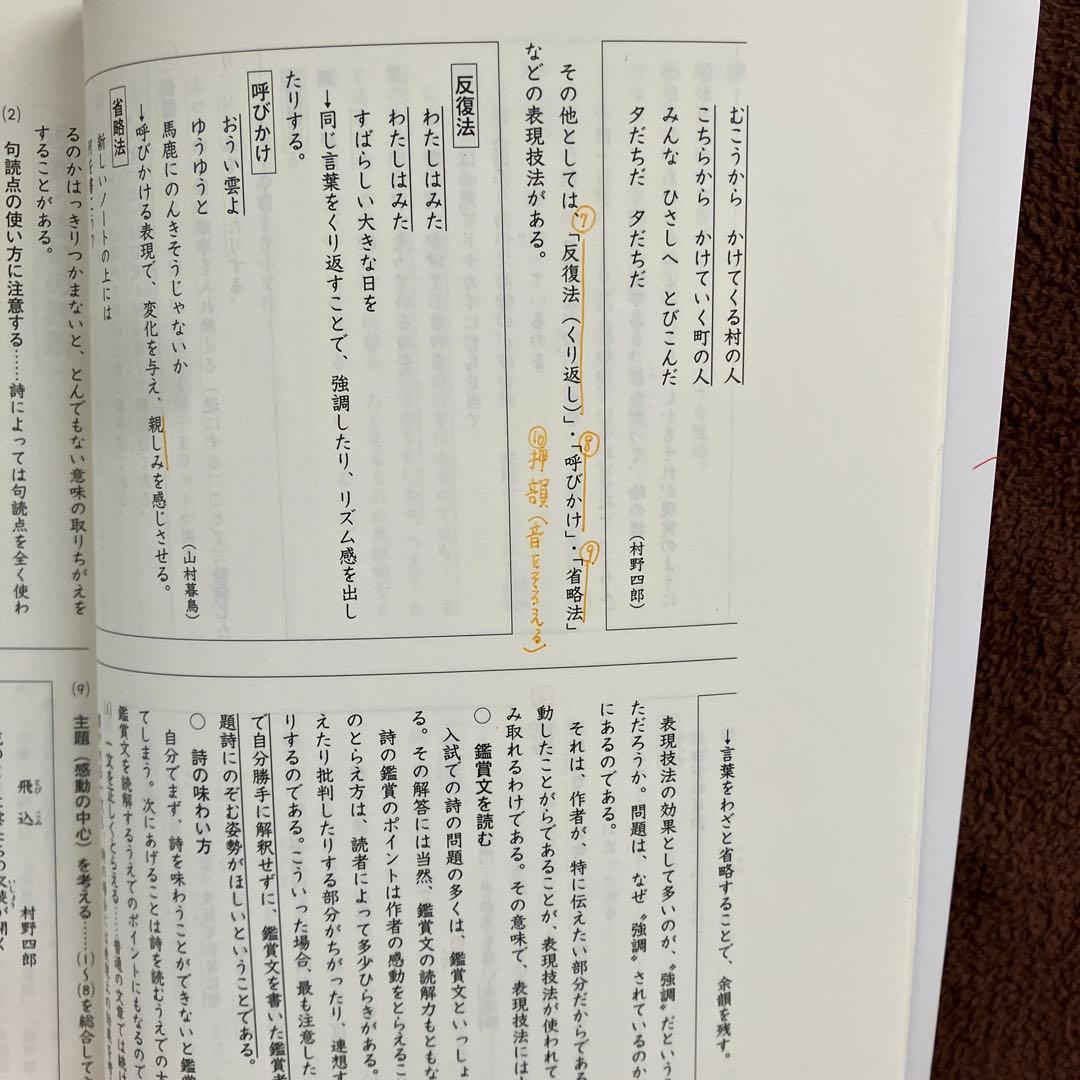 むこうから　かけてくる村の人
こちらから　かけていく町の人
みんな　ひさしへ　とびこんだ
夕だちだ　夕だちだ
（村野四郎）
その他としては、「反復法（くり返し）」・「呼びかけ」・「省略法」
などの表現技法がある。
⑦
⑧
⑨
⑩押韻（音をそろえる）
反復法
わたしはみた
わたしはみた
すばらしい大きな日を
→同じ言葉をくり返すことで、強調したり、リズム感を出し
たりする。
呼びかけ
おうい雲よ
ゆうゆうと
馬鹿にのんきそうじゃないか
（山村暮鳥）
→呼びかける表現で、変化を与え、親しみを感じさせる。
省略法
新しいノートの上には
→言葉をわざと省略することで、余韻を残す。
表現技法の効果として多いのが、〝強調〟だという
ただろうか。問題は、なぜ〝強調〟されているのか
にあるのである。
それは、作者が、特に伝えたい部分だからである
動したことがらであることが、表現技法が使われて
み取れるわけである。その意味で、表現技法には
○　鑑賞文を読む
入試での詩の問題の多くは、鑑賞文といっしょ
る。その解答には当然、鑑賞文の読解力もともな
詩の鑑賞のポイントは作者の感動をとらえるこ
のとらえ方は、読者によって多少ひらきがある。
えたり批判したりする部分がちがったり、連想す
りするのである。こういった場合、最も注意した
で自分勝手に解釈せずに、鑑賞文を書いた鑑賞者
題詩にのぞむ姿勢がほしいということである。
○　詩の味わい方
自分でまず、詩を味わうことができないと鑑賞
てしまう。次にあげることは詩を読むうえでの大
鑑賞文を読解するうえでのポイントにもなるので
るのかはっきりつかまないと、とんでもない意味の取りちがえを
することがある。
(2)　句読点の使い方に注意する……詩によっては句読点を全く使わ
(9)　主題（感動の中心）を考える……(1)～(8)を総合して
飛込
とび　こみ
村野四郎